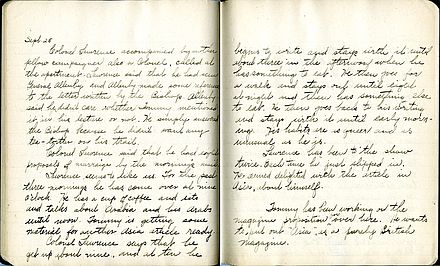 Sept. 28
Colonel Lawrence accompanied by another
fellow campaigner also a Colonel, called at
the apartment. Lawrence said that he had seen
General Allenby and Allenby made some reference
to the letter written by the Bishop. Allenby
said he didnt care whether Tommy mentioned
it in his lecture or not. He simply answered
the Bishop because he didnt want any
on his trail.
Colonel Lawrence said that he had
proposals of marriage by the morning mail.
Lawrence seems to like us. For the past
three mornings he has come over at nine
o'clock. He has a cup of coffee and sits
and talks about Arabia and his Arabs
until noon. Tommy is getting some
material for another Asia article ready.
Colonel Lawrence says that he
gets up about nine, and at ten he
begins to write and stays with it until
about three in the afternoon when he
has something to eat. He then goes for
a walk and stays out until eight
at night and then has something else
to eat. He then goes back to his writing
and stays with it until early morn-
ing. His habits are as queer and as
unusual as he is.
Lawrence has been to the show
twice. Each time he just slipped in.
He seemed delighted with the article in
Asia, about himself.
Tommy has been working on the
magazine proposition over here. He wants
to put out "Asia" as a purely British
magazine.